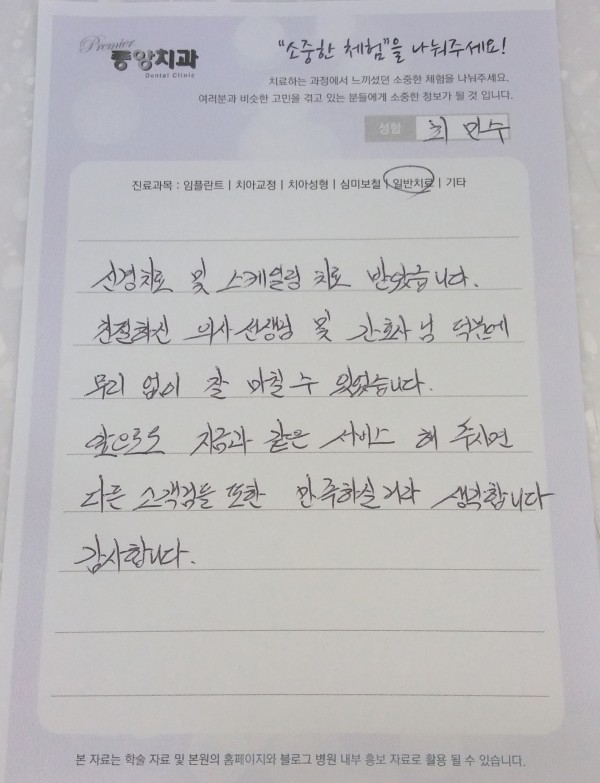 Premier
중앙치과
Dental Clinic
"소중한 체험"을 나눠주세요!
치료하는 과정에서 느끼셨던 소중한 체험을 나눠주세요.
여러분과 비슷한 고민을 겪고 있는 분들에게 소중한 정보가 될 것 입니다.
성함 최민수
진료과목 : 임플란트 | 치아교정 | 치아성형 | 심미보철 | 일반치료 | 기타
신경치료 및 스케일링 치료 받았습니다.
친절하신 의사선생님 및 간호사님 덕분에
무리 없이 잘 마칠 수 있었습니다.
앞으로도 지금과 같은 서비스 해 주시면
다른 고객님들 또한 만족하실거라 생각합니다
감사합니다.
본 자료는 학술 자료 및 본원의 홈페이지와 블로그 병원 내부 홍보 자료로 활용 될 수 있습니다.